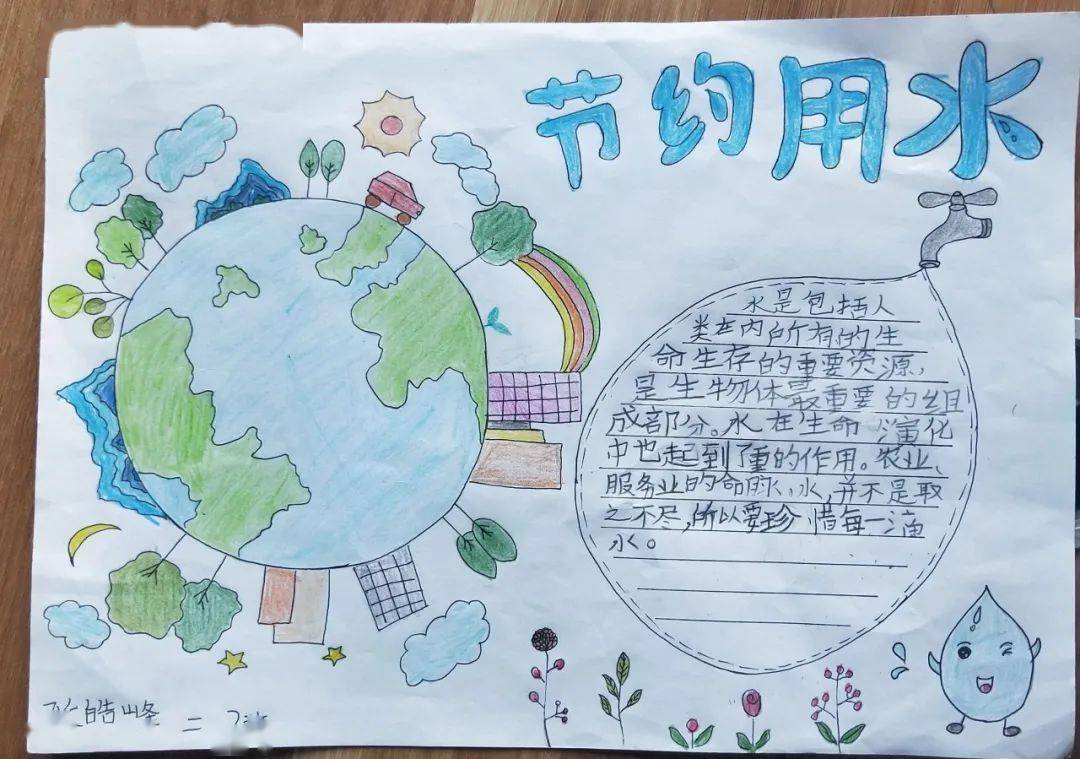 节约用水
水是包括人
类在内所有的生
命生存的重要资源,
是生物体最重要的组
成部分。水在生命演化
中也起到了重的作用。农业、
服务业的命脉,水,并不是取
之不尽,所以要珍惜每一滴
水。
皓峰
二